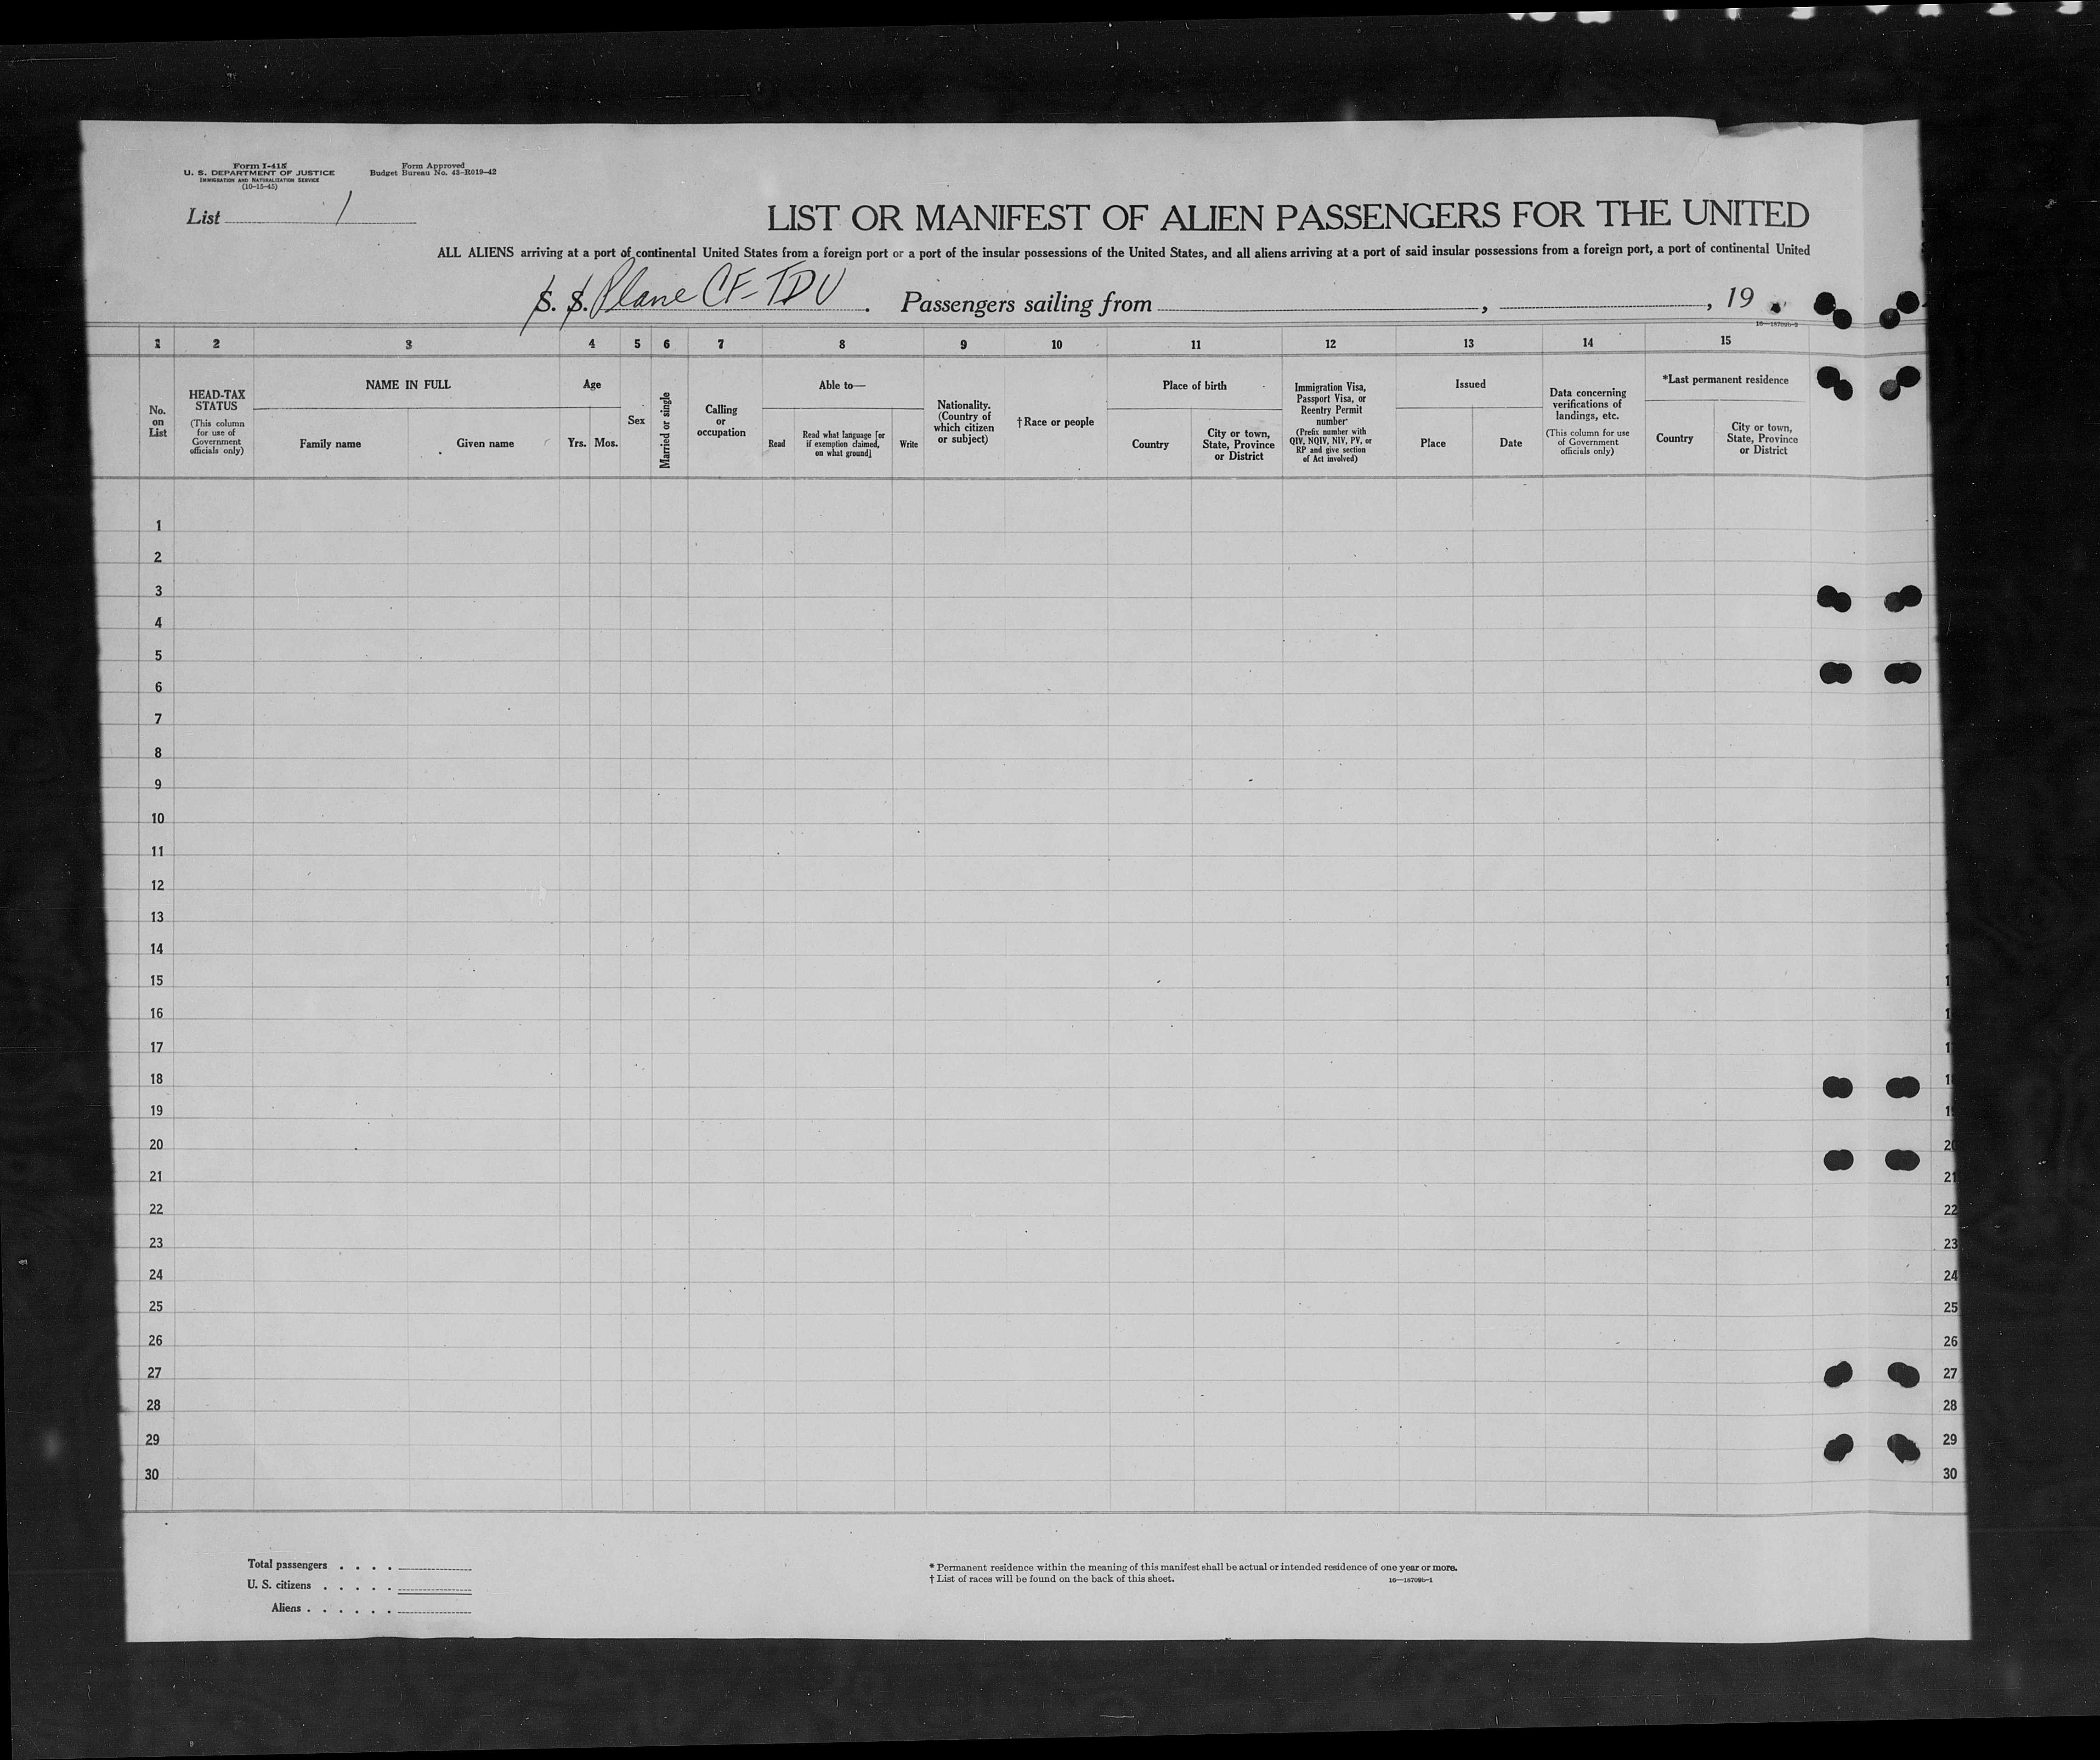 Form I-415
U. S. DEPARTMENT OF JUSTICE
IMMIGRATION AND NATURALIZATION SERVICE
(10-15-45)
Form Approved
Budget Bureau No. 43-R019-42
List 1
LIST OR MANIFEST OF ALIEN PASSENGERS FOR THE UNITED
ALL ALIENS arriving at a port of continental United States from a foreign port or a port of the insular possessions of the United States, and all aliens arriving at a port of said insular possessions from a foreign port, a port of continental United
S. S. Plane CF-TDU. Passengers sailing from , , 19
1 2 3 4 5 6 7 8 9 10 11 12 13 14 15
No.
on
List
HEAD-TAX
STATUS
(This column
for use of
Government
officials only)
NAME IN FULL
Family name
Given name
Age
Yrs. Mos.
Sex
Married or single
Calling
or
occupation
Able to—
Read
Read what language [or
if exemption claimed,
on what ground]
Write
Nationality.
(Country of
which citizen
or subject)
†Race or people
Place of birth
Country
City or town,
State, Province
or District
Immigration Visa,
Passport Visa, or
Reentry Permit
number
(Prefix number with
QIV, NQIV, NIV, PV, or
RP and give section
of Act involved)
Issued
Place
Date
Data concerning
verifications of
landings, etc.
(This column for use
of Government
officials only)
*Last permanent residence
Country
City or town,
State, Province
or District
1
2
3
4
5
6
7
8
9
10
11
12
13
14
15
16
17
18
19
20
21 21
22 22
23 23
24 24
25 25
26 26
27 27
28 28
29 29
30 30
Total passengers . . . .
U. S. citizens . . . . .
Aliens . . . . . .
* Permanent residence within the meaning of this manifest shall be actual or intended residence of one year or more.
† List of races will be found on the back of this sheet.